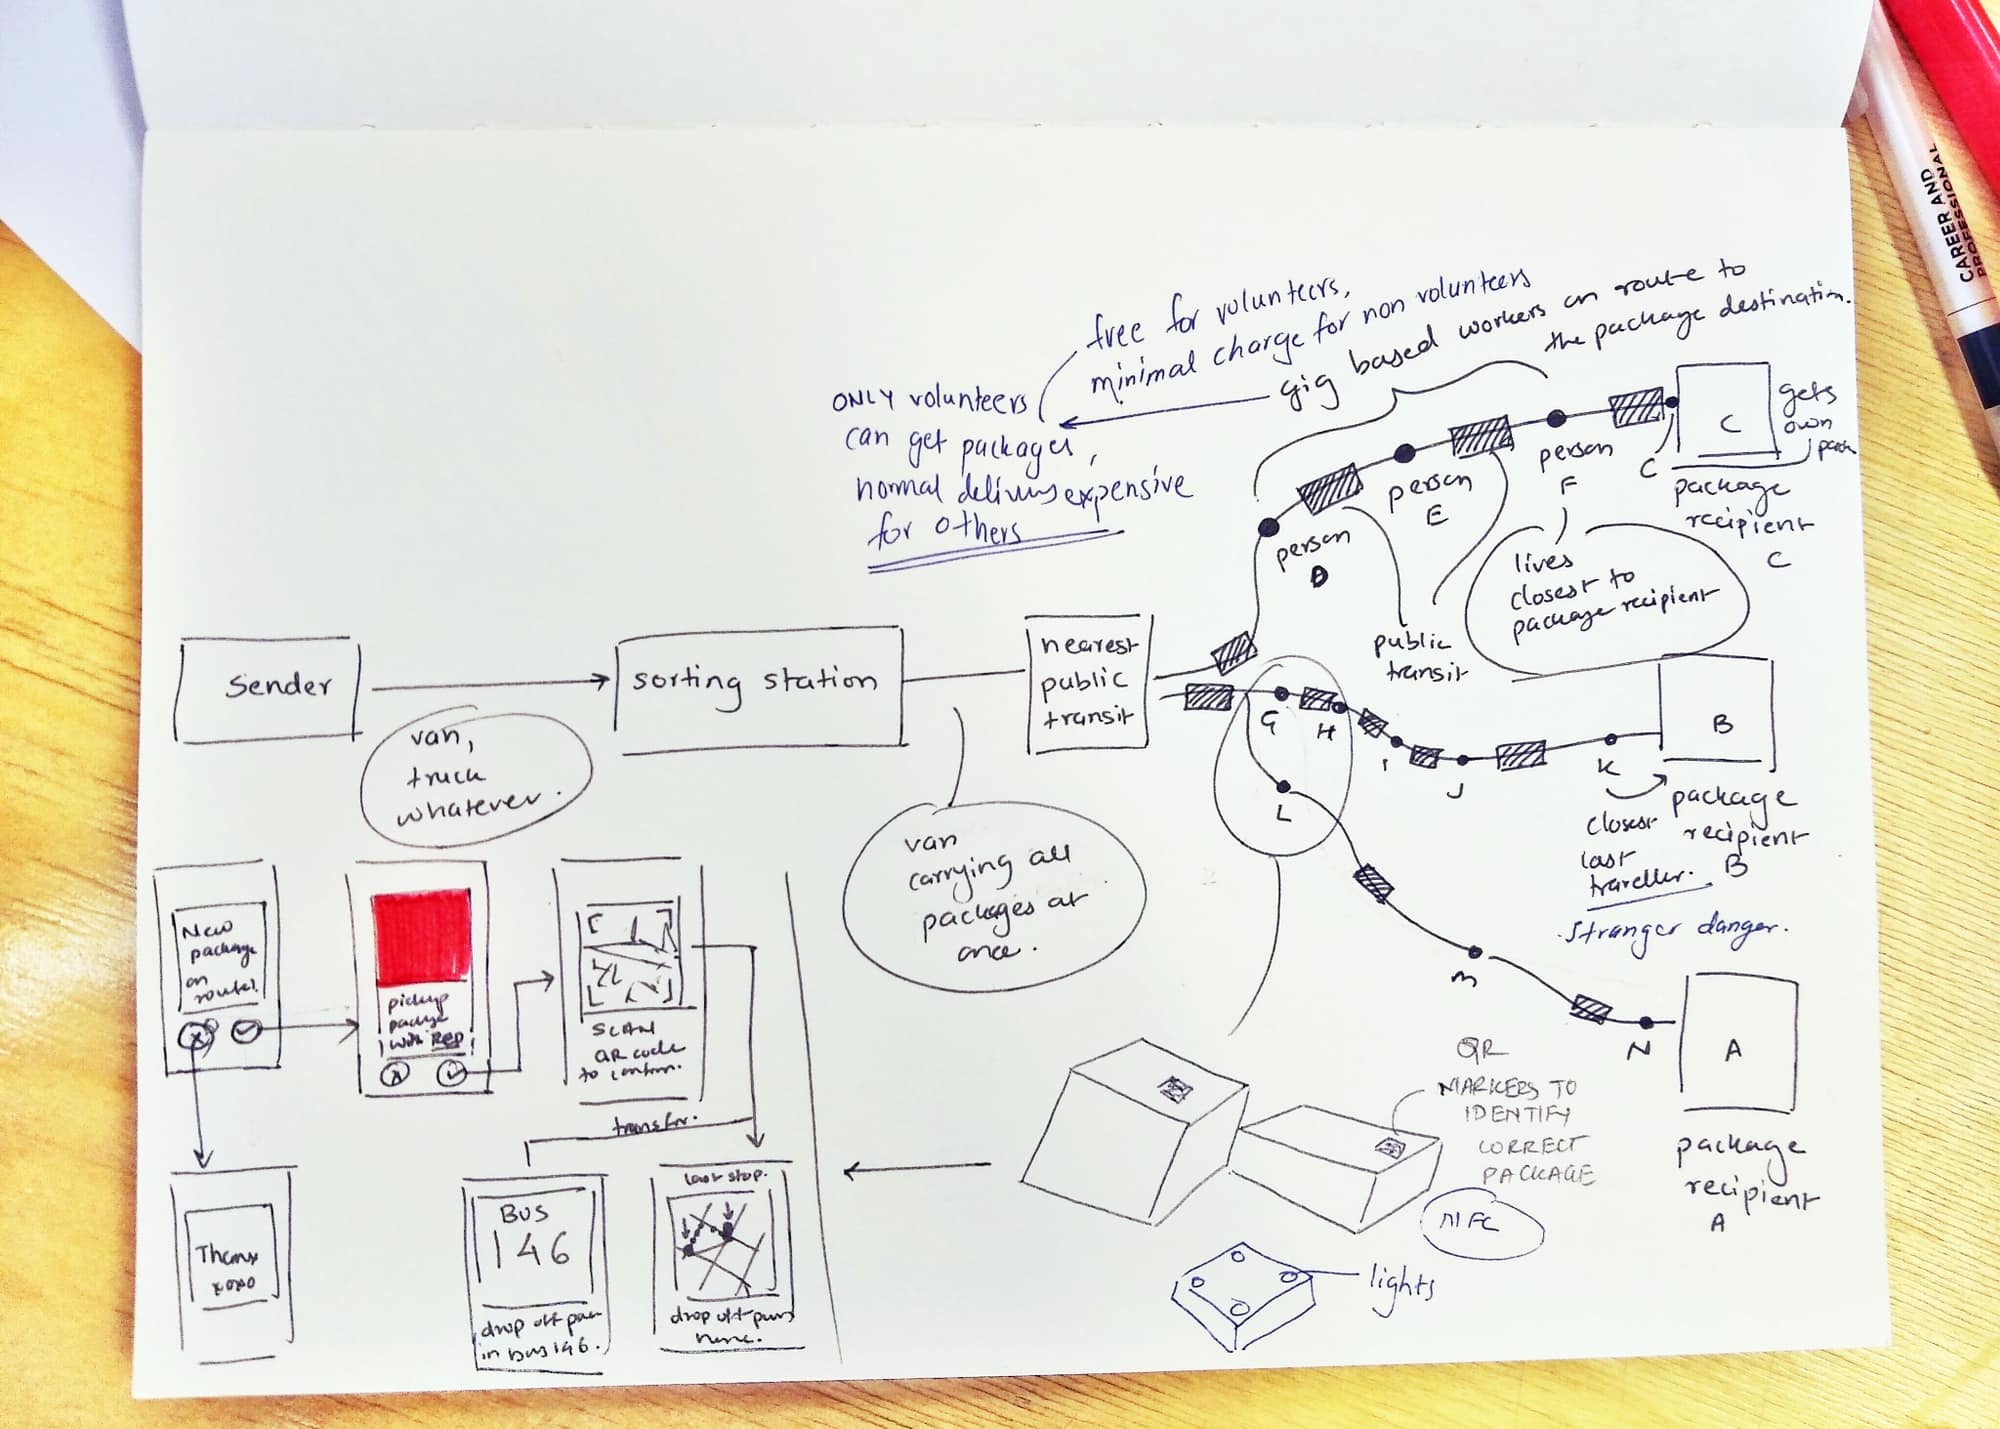 CAREER AND
PROFESSIONAL
free for volunteers,
minimal charge for non volunteers
gig based workers on route to
the package destination.
ONLY volunteers
can get packages,
normal delivery expensive
for others
person
D
person
E
person
F
C
C
gets
own
package
recipient
C
lives
closest to
package recipient
public
transit
Sender
van,
truck
whatever.
sorting station
van
carrying all
packages at
once.
nearest
public
transit
G
H
I
J
K
L
M
N
B
package
recipient
B
closest
last
traveller.
Stranger danger.
A
package
recipient
A
New
package
on
route!
pickup
package
with Rep
SCAN
QR code
to confirm.
transfer.
Thanx
xoxo
BUS
146
drop off
in Bus 146.
last stop.
drop off
here.
QR
MARKERS TO
IDENTIFY
CORRECT
PACKAGE
NFC
lights